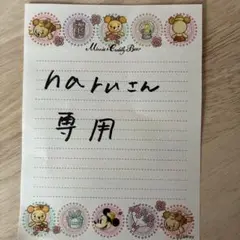 Minnie's Cuddly Bear
haruさん
専用